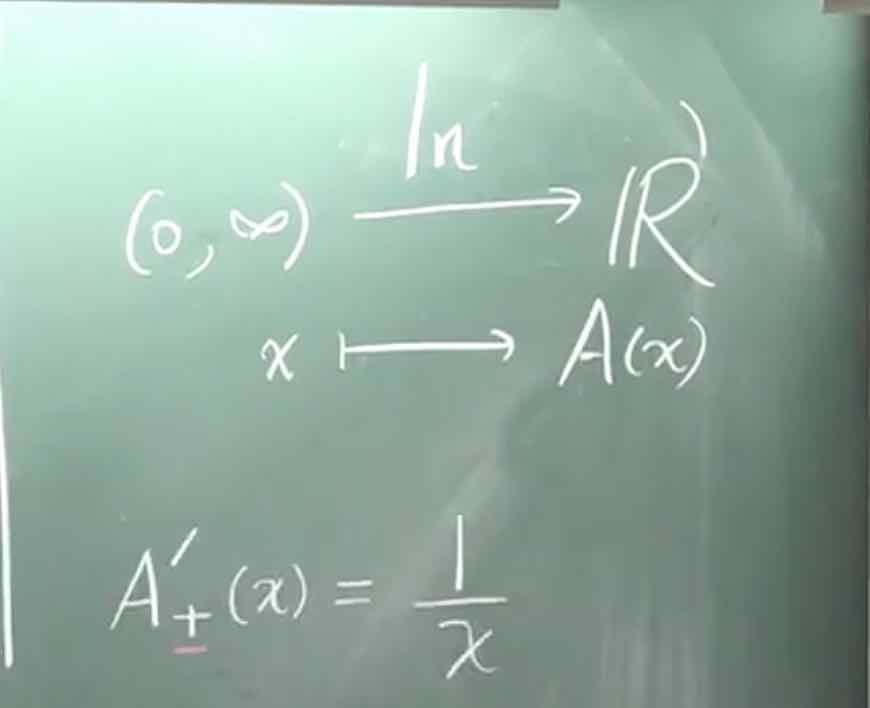 (0, ∞) —ln→ ℝ
x ⟼ A(x)
A′₊(x) = 1/x